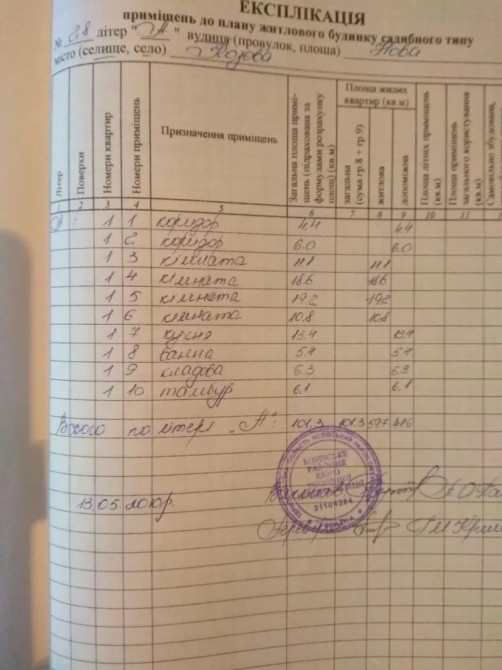 ЕКСПЛІКАЦІЯ
приміщень до плану житлового будинку садибного типу
№ 28 літер "А" вулиця (провулок, площа) Нова
місто (селище, село) Козова
Літер
Поверхи
Номери квартир
Номери приміщень
Призначення приміщень
Загальна площа приміщень (підрахована за формулами розрахунку площ) (кв.м)
Площа жилих квартир (кв.м)
загальна (сума гр.8 + гр.9)
житлова
допоміжна
Площа літніх приміщень (кв.м)
Площа приміщень загального користування (кв.м)
Самовільно збудовані,
1 2 3 4 5 6 7 8 9 10 11
"А" 1 1 коридор 4.4 4.4
1 2 коридор 6.0 6.0
1 3 кімната 11.1 11.1
1 4 кімната 18.6 18.6
1 5 кімната 19.2 19.2
1 6 кімната 10.8 10.8
1 7 кухня 13.4 13.4
1 8 ванна 5.4 5.4
1 9 кладова 6.3 6.3
1 10 тамбур 6.1 6.1
Всього по літері "А": 101.3 101.3 59.7 41.6
13.05.2010р.
РАЙОННЕ
БЮРО